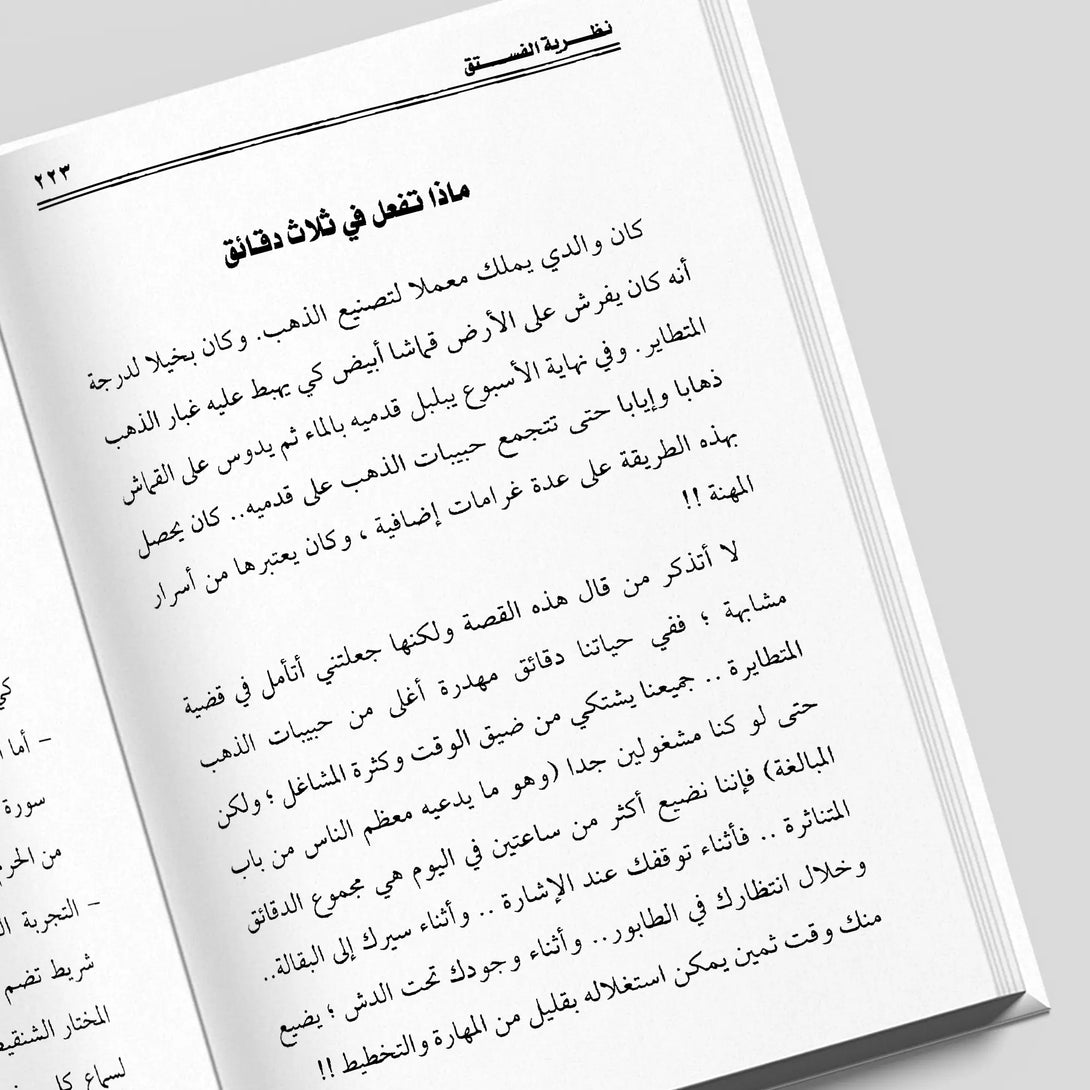 نظرية الفستق
٢٢٣
ماذا تفعل في ثلاث دقائق
كان والدي يملك معملا لتصنيع الذهب. وكان بخيلا لدرجة
أنه كان يفرش على الأرض قماشا أبيض كي يهبط عليه غبار الذهب
المتطاير. وفي نهاية الأسبوع يبلبل قدميه بالماء ثم يدوس على القماش
ذهابا وإيابا حتى تتجمع حبيبات الذهب على قدميه.. كان يحصل
بهذه الطريقة على عدة غرامات إضافية ، وكان يعتبرها من أسرار
المهنة !!
لا أتذكر من قال هذه القصة ولكنها جعلتني أتأمل في قضية
مشابهة ؛ ففي حياتنا دقائق مهدرة أغلى من حبيبات الذهب
المتطايرة .. جميعنا يشتكي من ضيق الوقت وكثرة المشاغل ؛ ولكن
حتى لو كنا مشغولين جدا (وهو ما يدعيه معظم الناس من باب
المبالغة) فإننا نضيع أكثر من ساعتين في اليوم هي مجموع الدقائق
المتناثرة .. فأثناء توقفك عند الإشارة .. وأثناء سيرك إلى البقالة..
وخلال انتظارك في الطابور.. وأثناء وجودك تحت الدش ؛ يضيع
منك وقت ثمين يمكن استغلاله بقليل من المهارة والتخطيط !!
كي
– أما
سورة
من الحرم
– التجربة
شريط تضم
المختار
لسماع